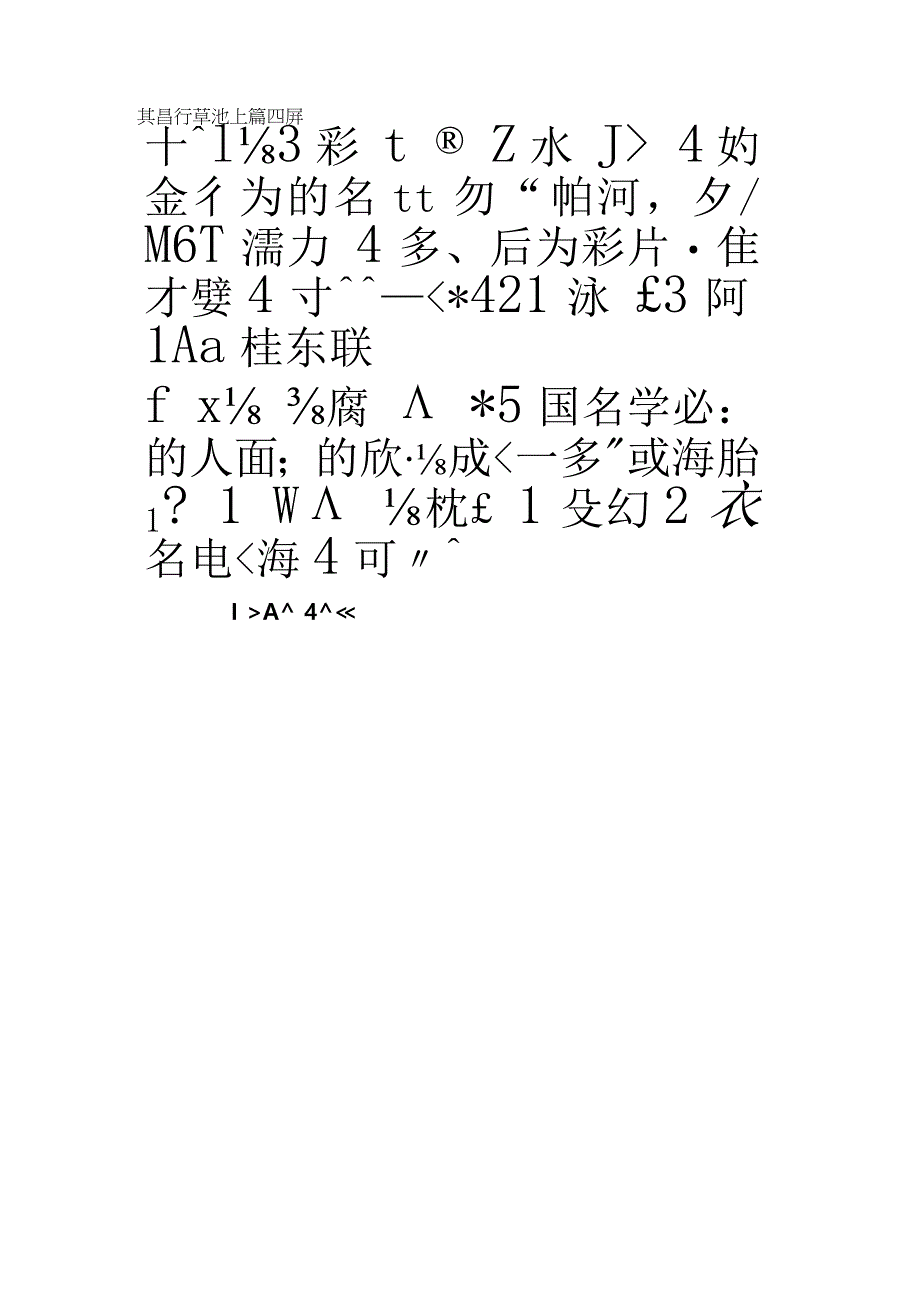 其昌行草池上篇四屏
十^l⅛3彩 t ® Z水 J> 4妁
金彳为的名tt勿“帕河，夕/
M6T濡力 4多、后为彩片•隹
才嬖4寸^^—<*421泳 £3阿
1Aa桂东联
f x⅛ ⅜腐 Λ *5国名学必：
的人面；的欣·⅛成<一多"或海胎
1? 1 WΛ ⅛枕£ 1殳幻2衣
名电<海4可〃^
I >A^ 4^≪